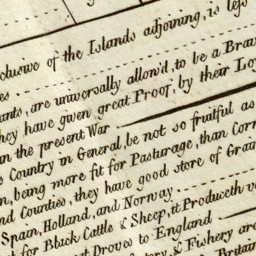 clusive of the Islands adjoining, is less
es
ants, are universally allow'd, to be a Brav
hey have given great Proof, by their Loy
n the present War
s Country in General, be not so fruitful as
n, being more fit for Pasturage, than Corn
nd Counties, they have good store of Grain
Spain, Holland, and Norway
t for Black Cattle & Sheep, it Produceth v
t Droves to England
tory, & Fishery are
Britain